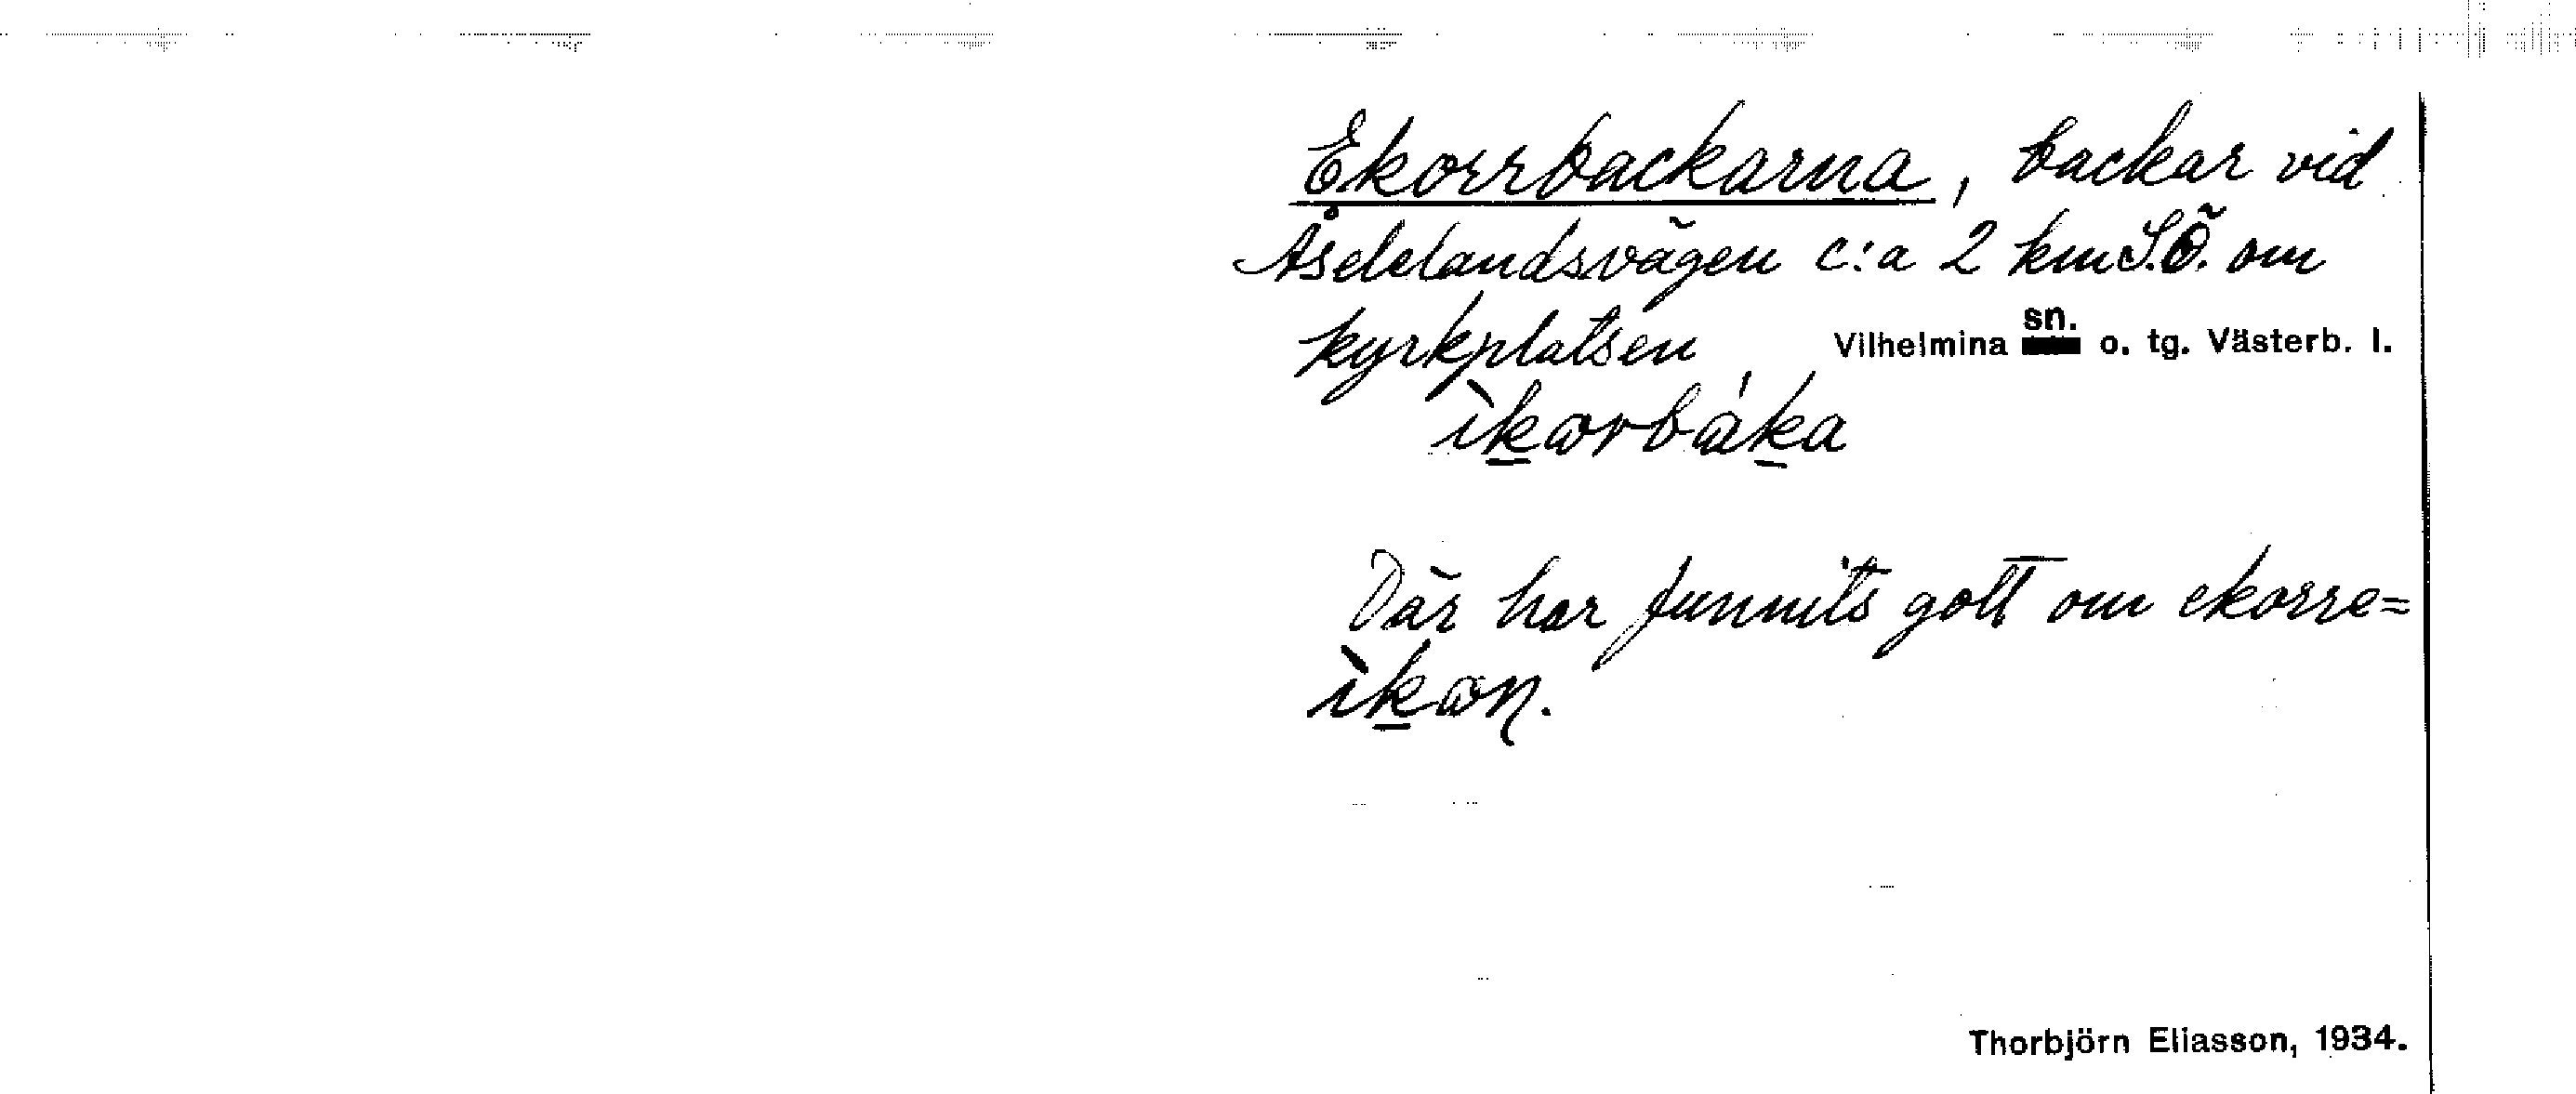 Ekorrbackarna, backar vid
Åselelandsvägen c:a 2 km S.Ö. om
kyrkplatsen Vilhelmina sn. o. tg. Västerb. l.
ìkɷrbáka
Där har funnits gott om ekorre=
ìkɷṇ.
Thorbjörn Eliasson, 1934.